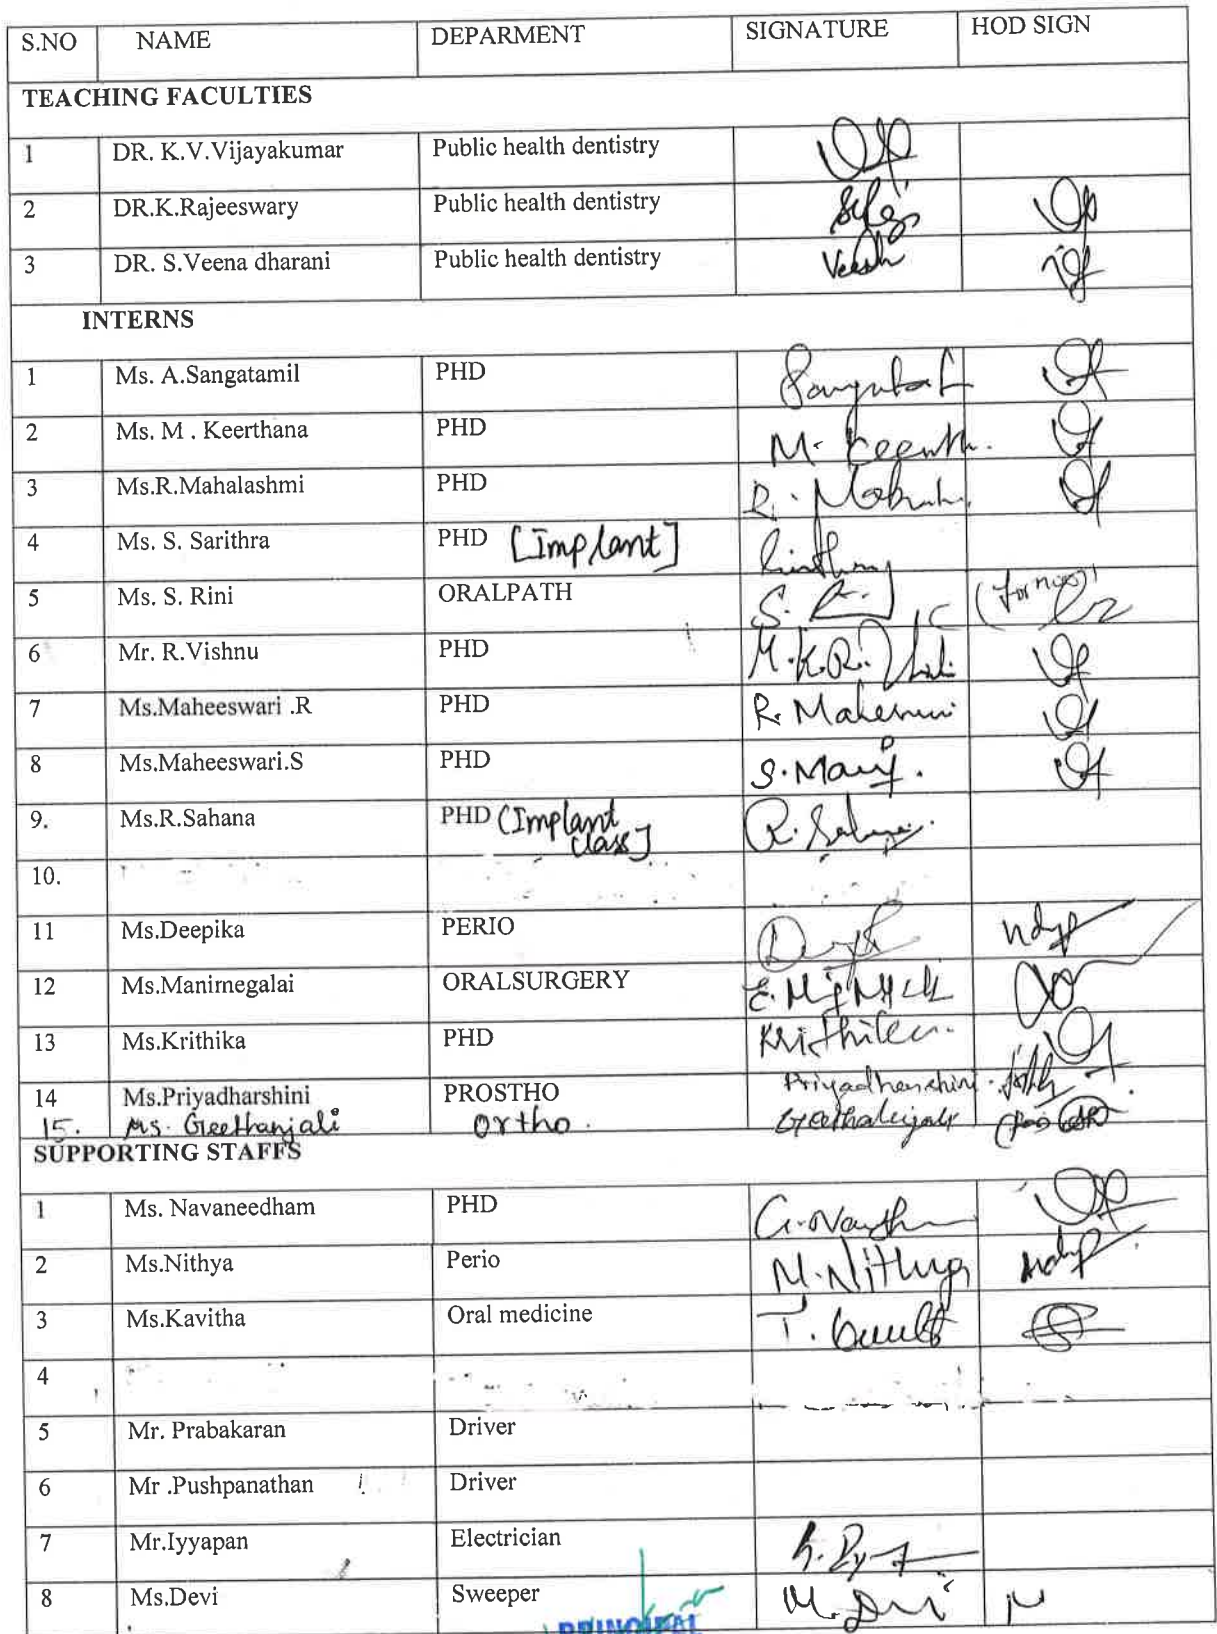 S.NO NAME DEPARMENT SIGNATURE HOD SIGN
TEACHING FACULTIES
1 DR. K.V.Vijayakumar Public health dentistry
2 DR.K.Rajeeswary Public health dentistry
3 DR. S.Veena dharani Public health dentistry
INTERNS
1 Ms. A.Sangatamil PHD
2 Ms. M . Keerthana PHD M.
3 Ms.R.Mahalashmi PHD R.
4 Ms. S. Sarithra PHD [Implant]
5 Ms. S. Rini ORALPATH S.
6 Mr. R.Vishnu PHD M.K.R.
7 Ms.Maheeswari .R PHD R.
8 Ms.Maheeswari.S PHD S.
9. Ms.R.Sahana PHD (Implant R.
class]
10.
11 Ms.Deepika PERIO
12 Ms.Manimegalai ORALSURGERY E.
13 Ms.Krithika PHD
14 Ms.Priyadharshini PROSTHO Priyadharshini
15. Ms. Geethanjali Ortho.
SUPPORTING STAFFS
1 Ms. Navaneedham PHD
2 Ms.Nithya Perio M.Nithya
3 Ms.Kavitha Oral medicine T.
4
5 Mr. Prabakaran Driver
6 Mr .Pushpanathan Driver
7 Mr.Iyyapan Electrician
8 Ms.Devi Sweeper M. Devi
PRINCIPAL